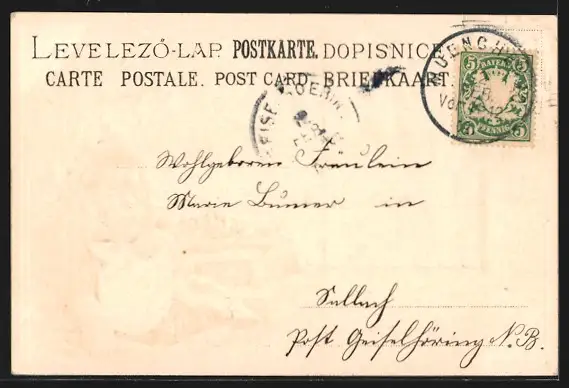 LEVELEZŐ-LAP. POSTKARTE. DOPISNICE
CARTE POSTALE. POST CARD. BRIEFKAART.
MUENCH
VOR
5 BAYERN 5
5 PFENNIG 5
Wohlgeboren Fräulein
Marie in
Sallach
Post Geiselhöring N.B.